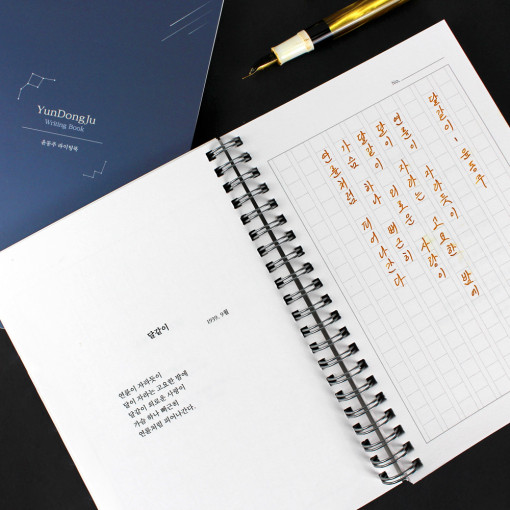 YunDongJu
Writing Book
윤동주 라이팅북
달같이
1939. 9월
연륜이 자라듯이
달이 자라는 고요한 밤에
달같이 외로운 사랑이
가슴 하나 뻐근히
연륜처럼 피어나간다.
No.
달같이 · 윤동주
연륜이 자라듯이
달이 자라는 고요한 밤에
달같이 외로운 사랑이
가슴 하나 뻐근히
연륜처럼 피어나간다